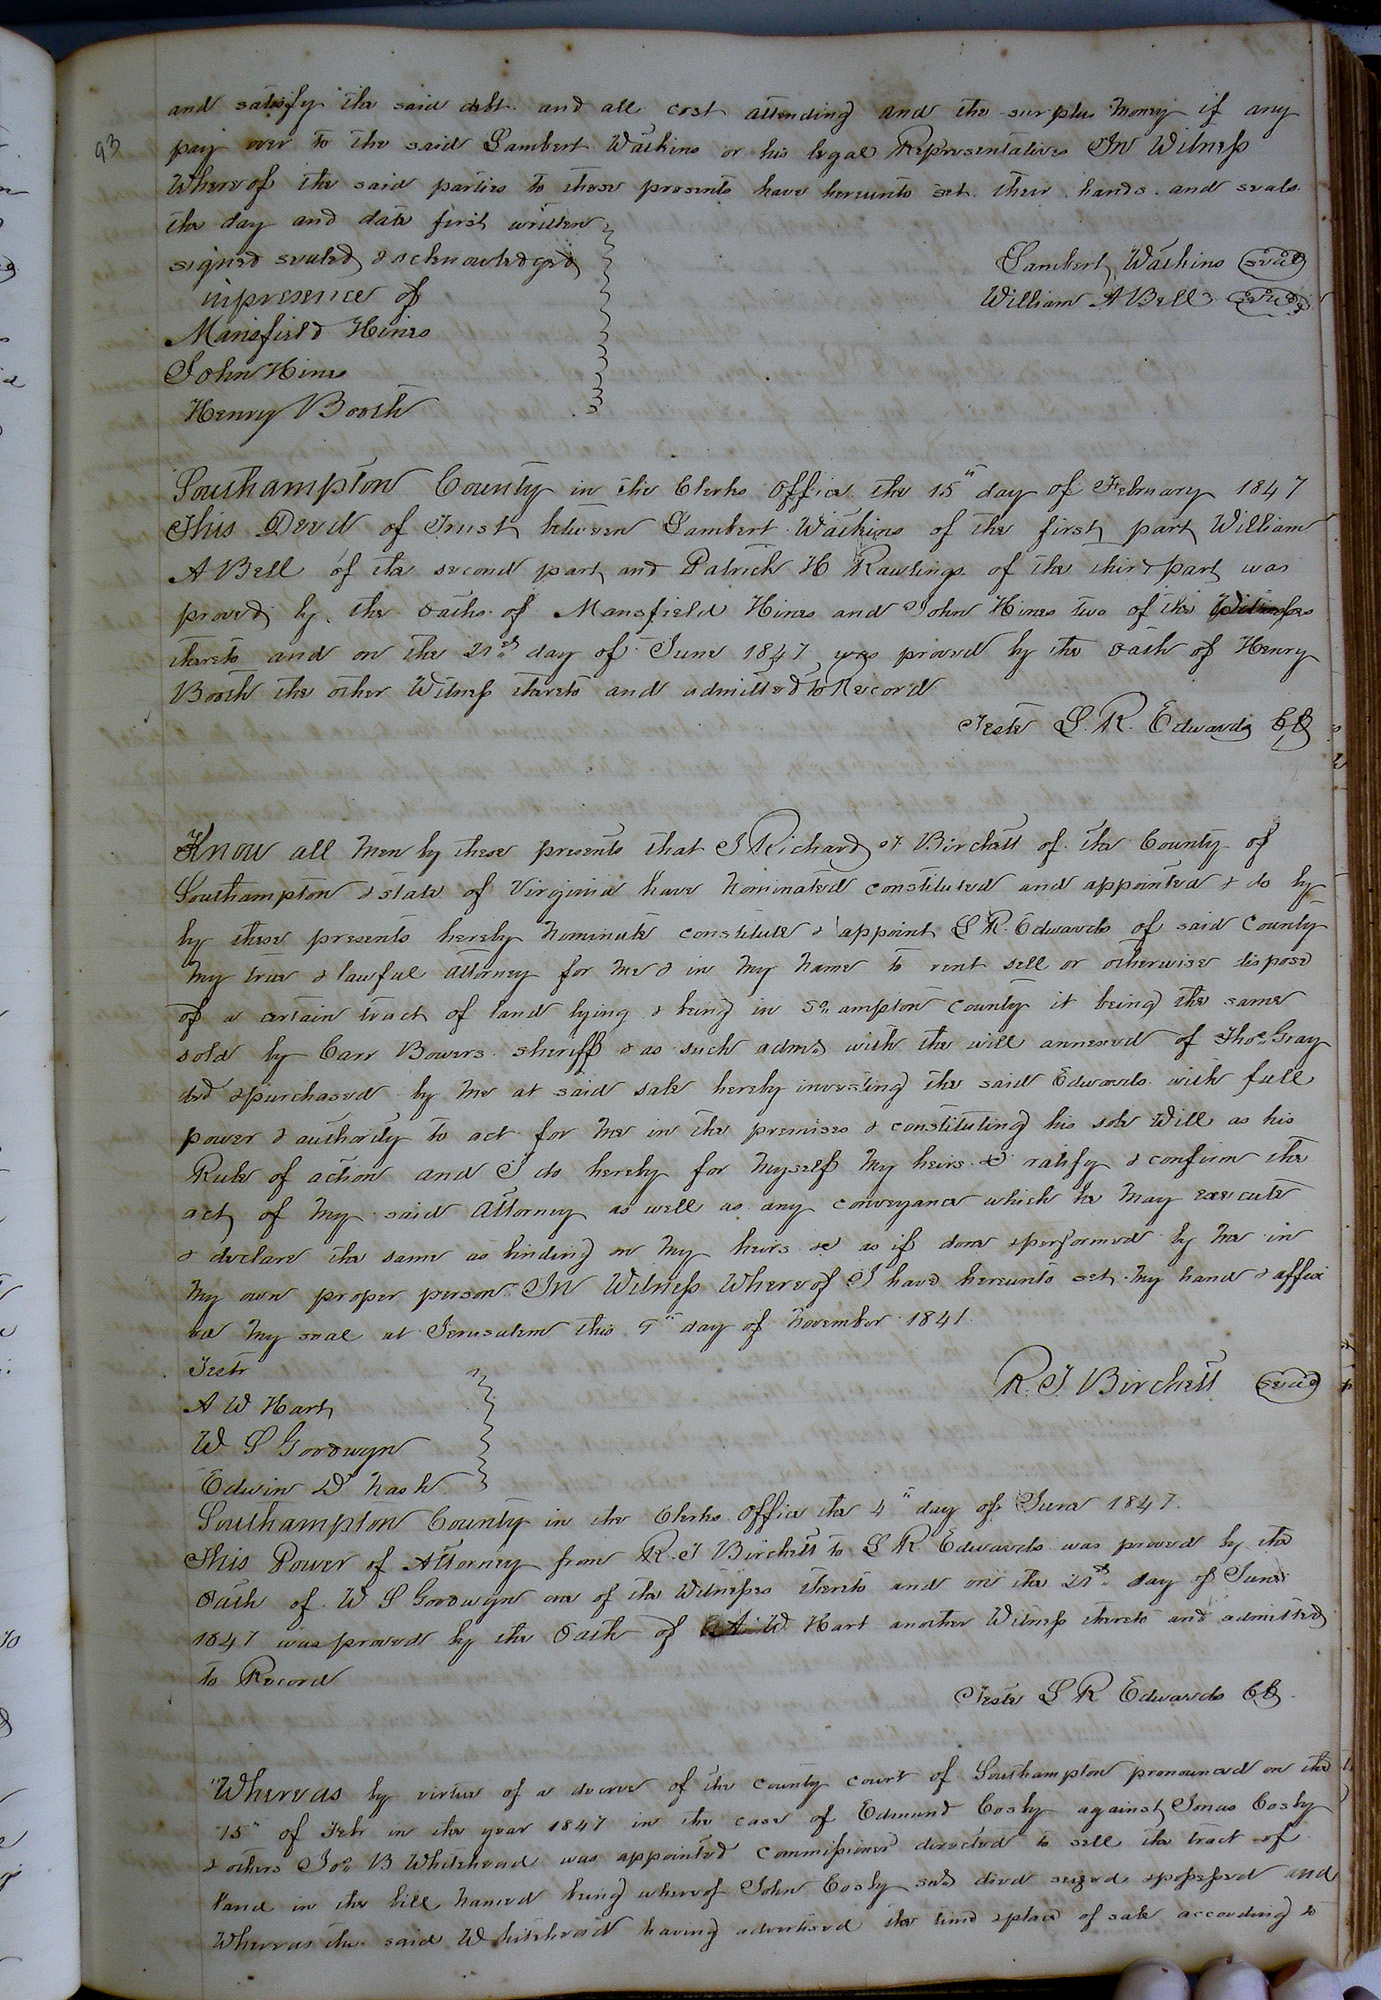 93
and satisfy the said debt and all cost attending and the surplus money if any
pay over to the said Lambert Watkins or his legal Representatives In Witness
Whereof the said parties to these presents have hereunto set their hands and seals
the day and date first written
signed sealed & acknowledged
Lambert Watkins seal
inpresence of
William A Bell seal
Mansfield Hines
John Hines
Henry Booth
Southampton County in the Clerks Office the 15th day of February 1847
This Deed of Trust between Lambert Watkins of the first part William
A Bell of the second part and Patrick H Rawlings of the third part was
proved by the oaths of Mansfield Hines and John Hines two of the Witnesses
thereto and on the 21st day of June 1847 was proved by the oath of Henry
Booth the other Witness thereto and admitted to Record
Teste L. R. Edwards CC
Know all men by these presents that I Richard T Birchett of the County of
Southampton & state of Virginia have nominated constituted and appointed & do by
by these presents hereby nominate constitute & appoint L R. Edwards of said County
my true & lawful attorney for me & in my name to rent sell or otherwise dispose
of a certain tract of land lying & being in So ampton County it being the same
sold by Carr Bowers sheriff & as such admr with the will annexed of Thos Gray
decd & purchased by me at said sale hereby investing the said Edwards with full
power & authority to act for me in the premises & constituting his sole Will as his
Rule of action and I do hereby for myself my heirs &c ratify & confirm the
act of my said attorney as well as any conveyance which he may execute
& declare the same as binding on my heirs &c as if done & performed by me in
my own proper person In Witness Whereof I have hereunto set my hand & affix
ed my seal at Jerusalem this 9th day of November 1841
Teste
R. T Birchett seal
A W Hart
W S Goodwyn
Edwin D Nash
Southampton County in the Clerks Office the 4th day of June 1847.
This Power of Attorney from R. T Birchett to L R Edwards was proved by the
Oath of W S Goodwyn one of the Witnesses thereto and on the 21st day of June
1847 was proved by the Oath of A W Hart another Witness thereto and admitted
to Record
Teste L R Edwards CC.
Whereas by virtue of a decree of the county court of Southampton pronounced on the
15th of Feb in the year 1847 in the case of Edmund Cosby against Jonas Cosby
& others Jno B Whitehead was appointed commissioner directed to sell the tract of
land in the bill named being whereof John Cosby died seized & possessed and
Whereas the said Whitehead having advertised the time & place of sale according to